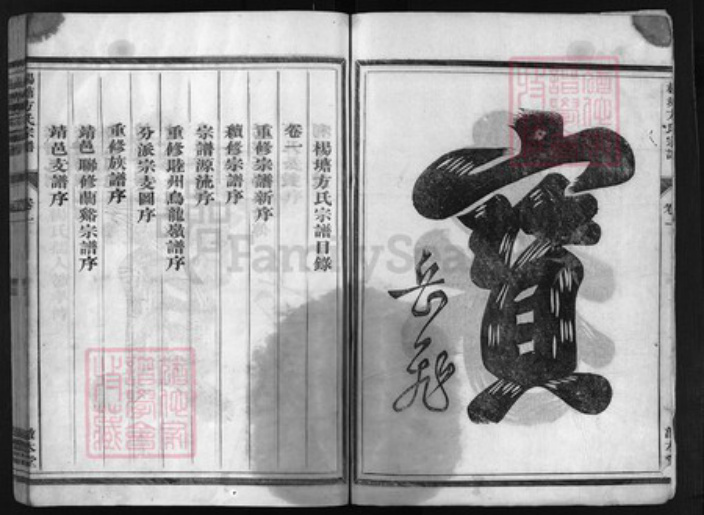 寶
岳飛
楊塘方氏宗譜目錄
卷一
重修宗譜新序
續修宗譜序
宗譜源流序
重修睦州烏龍嶺譜序
分派宗支圖序
重修族譜序
靖邑聯修蘭谿宗譜序
靖邑支譜序
方氏宗譜
卷一
FamilySearch